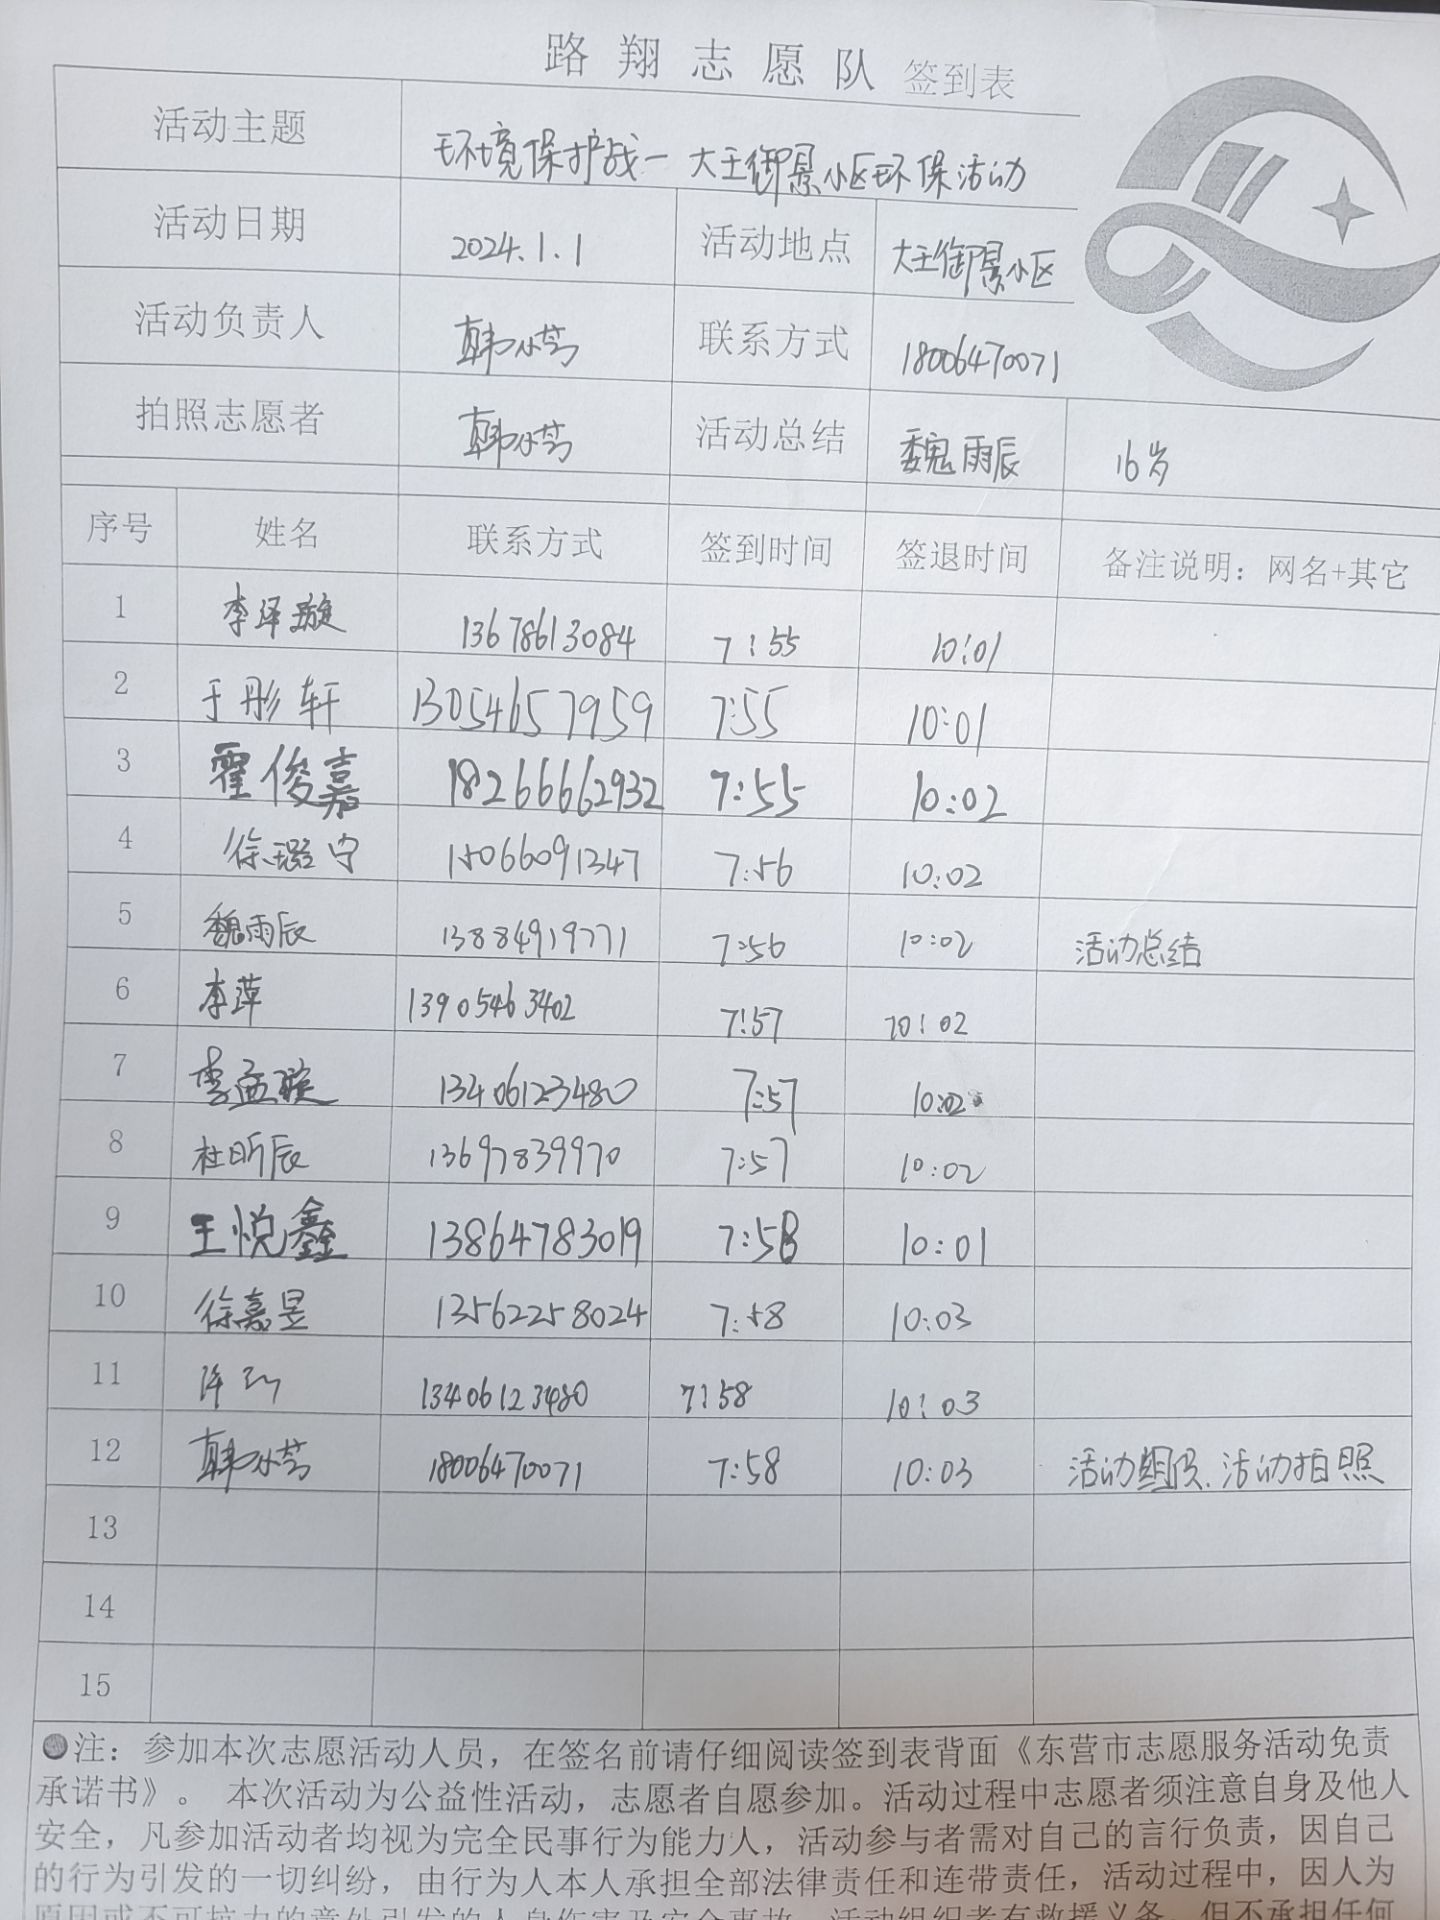 路翔志愿队 签到表
活动主题 环境保护战一 大王御景小区环保活动
活动日期 2024.1.1 活动地点 大王御景小区
活动负责人 韩小艺 联系方式 18006470071
拍照志愿者 韩小艺 活动总结 魏雨辰 16岁
序号 姓名 联系方式 签到时间 签退时间 备注说明：网名+其它
1 李泽璇 13678613084 7:55 10:01
2 于彤轩 13054657959 7:55 10:01
3 霍俊嘉 18266662932 7:55 10:02
4 徐璐宁 15066091347 7:56 10:02
5 魏雨辰 13884919771 7:56 10:02 活动总结
6 李萍 13905463402 7:57 10:02
7 李孟璇 13406123480 7:57 10:02
8 杜昕辰 13697839970 7:57 10:02
9 王悦鑫 13864783019 7:58 10:01
10 徐嘉昱 13562258024 7:58 10:03
11 13406123480 7:58 10:03
12 韩小艺 18006470071 7:58 10:03 活动组织、活动拍照
13
14
15
●注：参加本次志愿活动人员，在签名前请仔细阅读签到表背面《东营市志愿服务活动免责
承诺书》。 本次活动为公益性活动，志愿者自愿参加。活动过程中志愿者须注意自身及他人
安全，凡参加活动者均视为完全民事行为能力人，活动参与者需对自己的言行负责，因自己
的行为引发的一切纠纷，由行为人本人承担全部法律责任和连带责任，活动过程中，因人为
原因或不可抗力的意外引发的人身伤害及安全事故，活动组织者有救援义务，但不承担任何